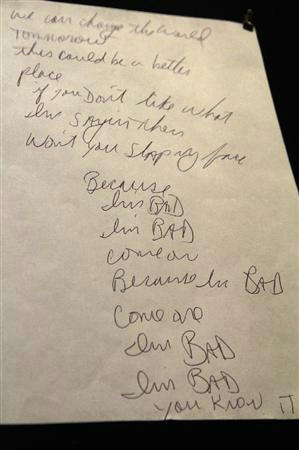 we can change the world
Tomorrow
this could be a better
place
if you Don't like what
Im Sayin then
Won't you Slap my face
Because
Im BAD
Im BAD
come on
Because Im BAD
Come on
Im BAD
Im BAD
YOU KNOW IT